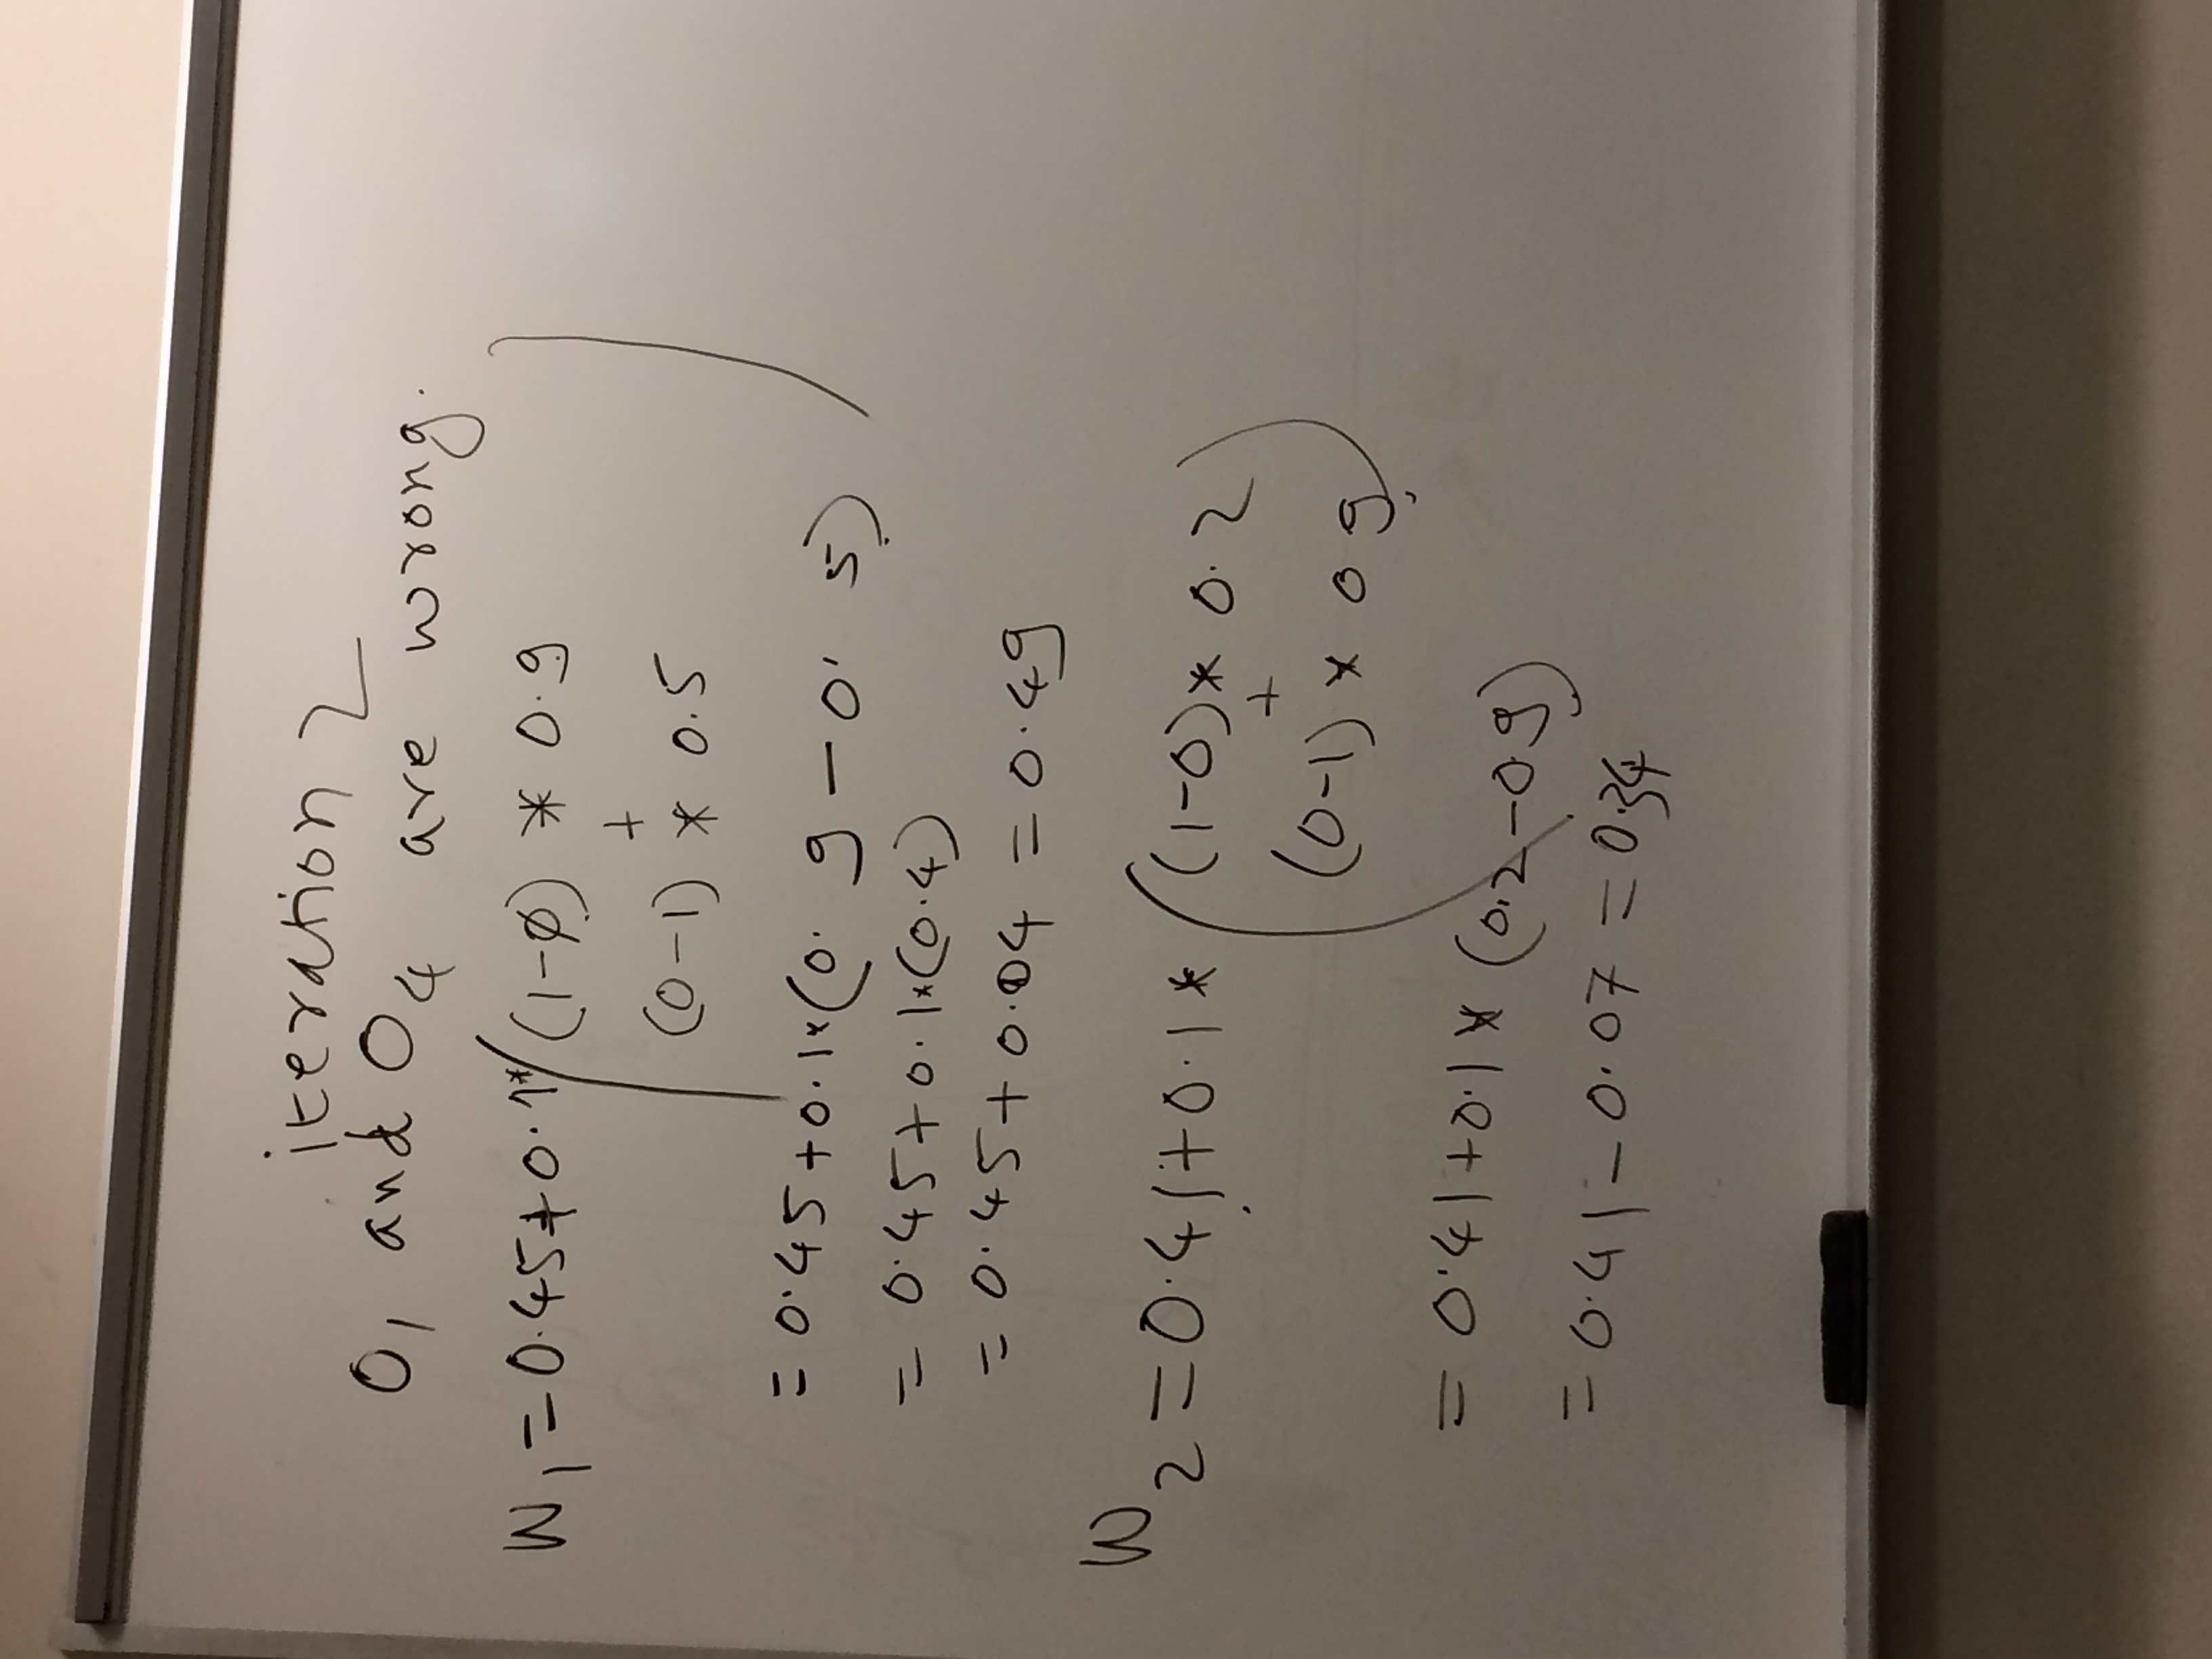 iteration 2
O1 and O4 are wrong.
W1 = 0.45 + 0.1* ( (1-0) * 0.9
+
(0-1) * 0.5 )
= 0.45 + 0.1* (0.9 - 0.5)
= 0.45 + 0.1* (0.4)
= 0.45 + 0.04 = 0.49
W2 = 0.41 + 0.1 * ( (1-0) * 0.2
+
(0-1) * 0 9 )
= 0.41 + 0.1 * (0.2 - 0.9)
= 0.41 - 0.07 = 0.34